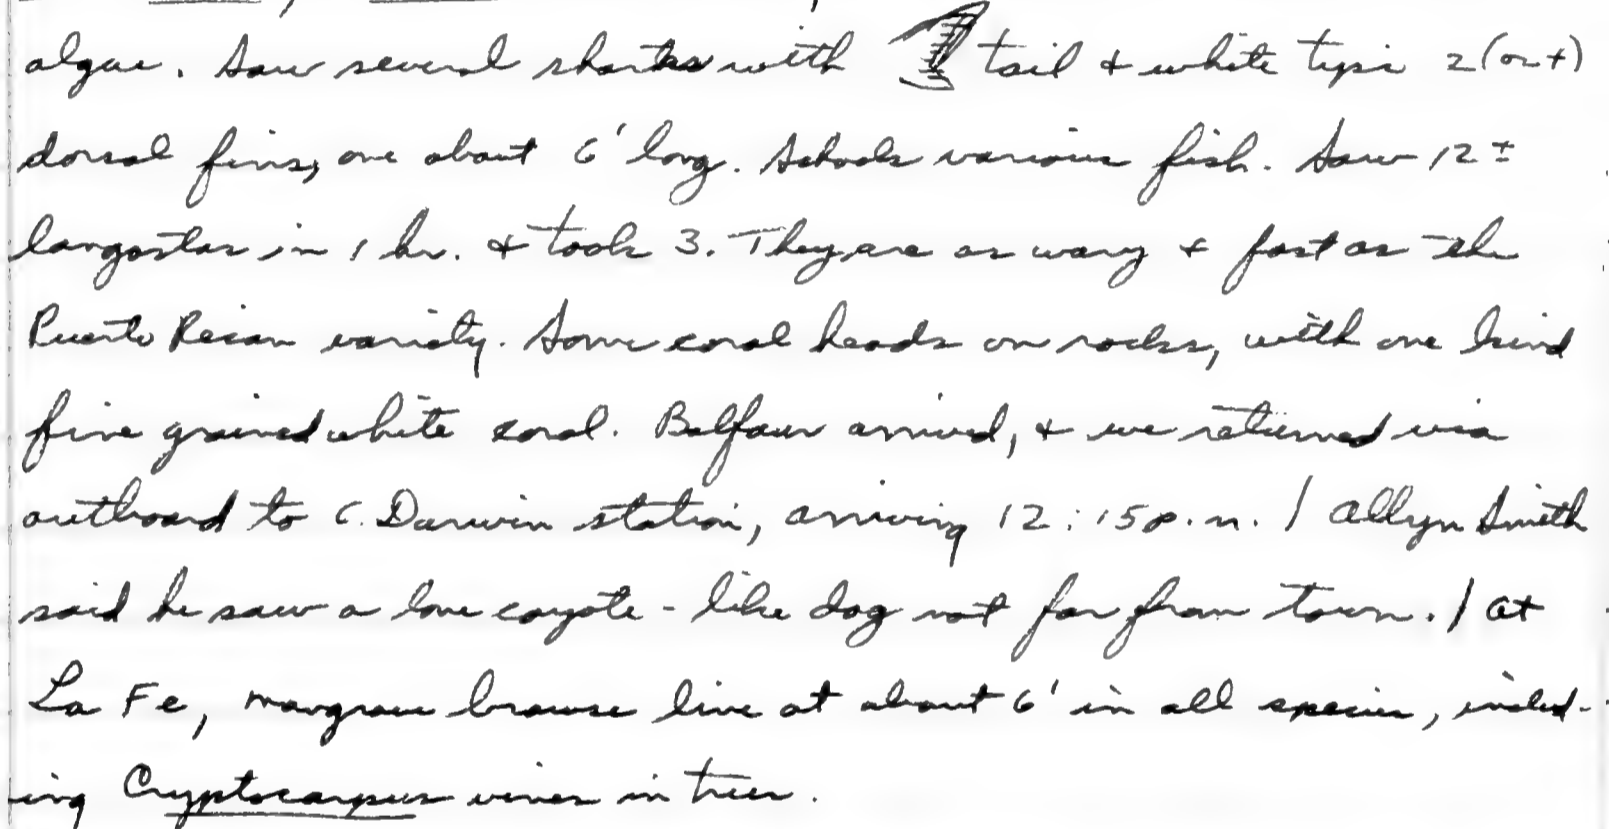 algae. Saw several sharks with tail & white tips 2(or +)
dorsal fins, one about 6' long. Schools various fish. Saw 12±
langostas in 1 hr. & took 3. They are as wary & fast as the
Puerto Rican variety. Some coral heads on rocks, with one kind
fine grained white coral. Balfour arrived, & we returned via
outboard to C. Darwin station, arriving 12:15 p.m. / Allyn Smith
said he saw a lone coyote-like dog not far from town. / At
La Fe, mangrove browse line at about 6' in all species, includ-
ing Cryptocarpus vines in trees.